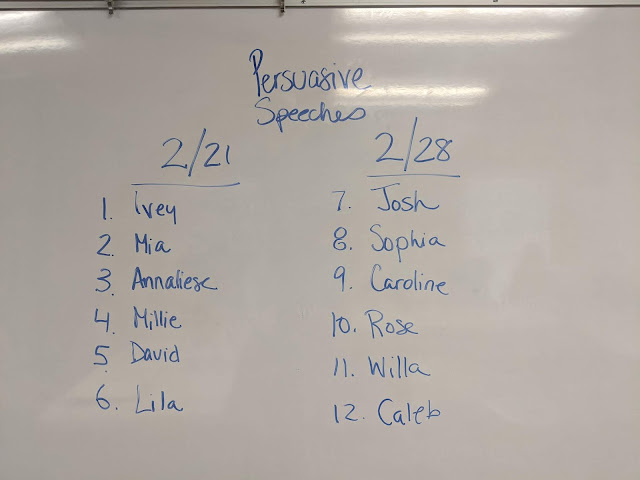 Persuasive
Speeches
2/21
1. Ivey
2. Mia
3. Annaliese
4. Millie
5. David
6. Lila
2/28
7. Josh
8. Sophia
9. Caroline
10. Rose
11. Willa
12. Caleb